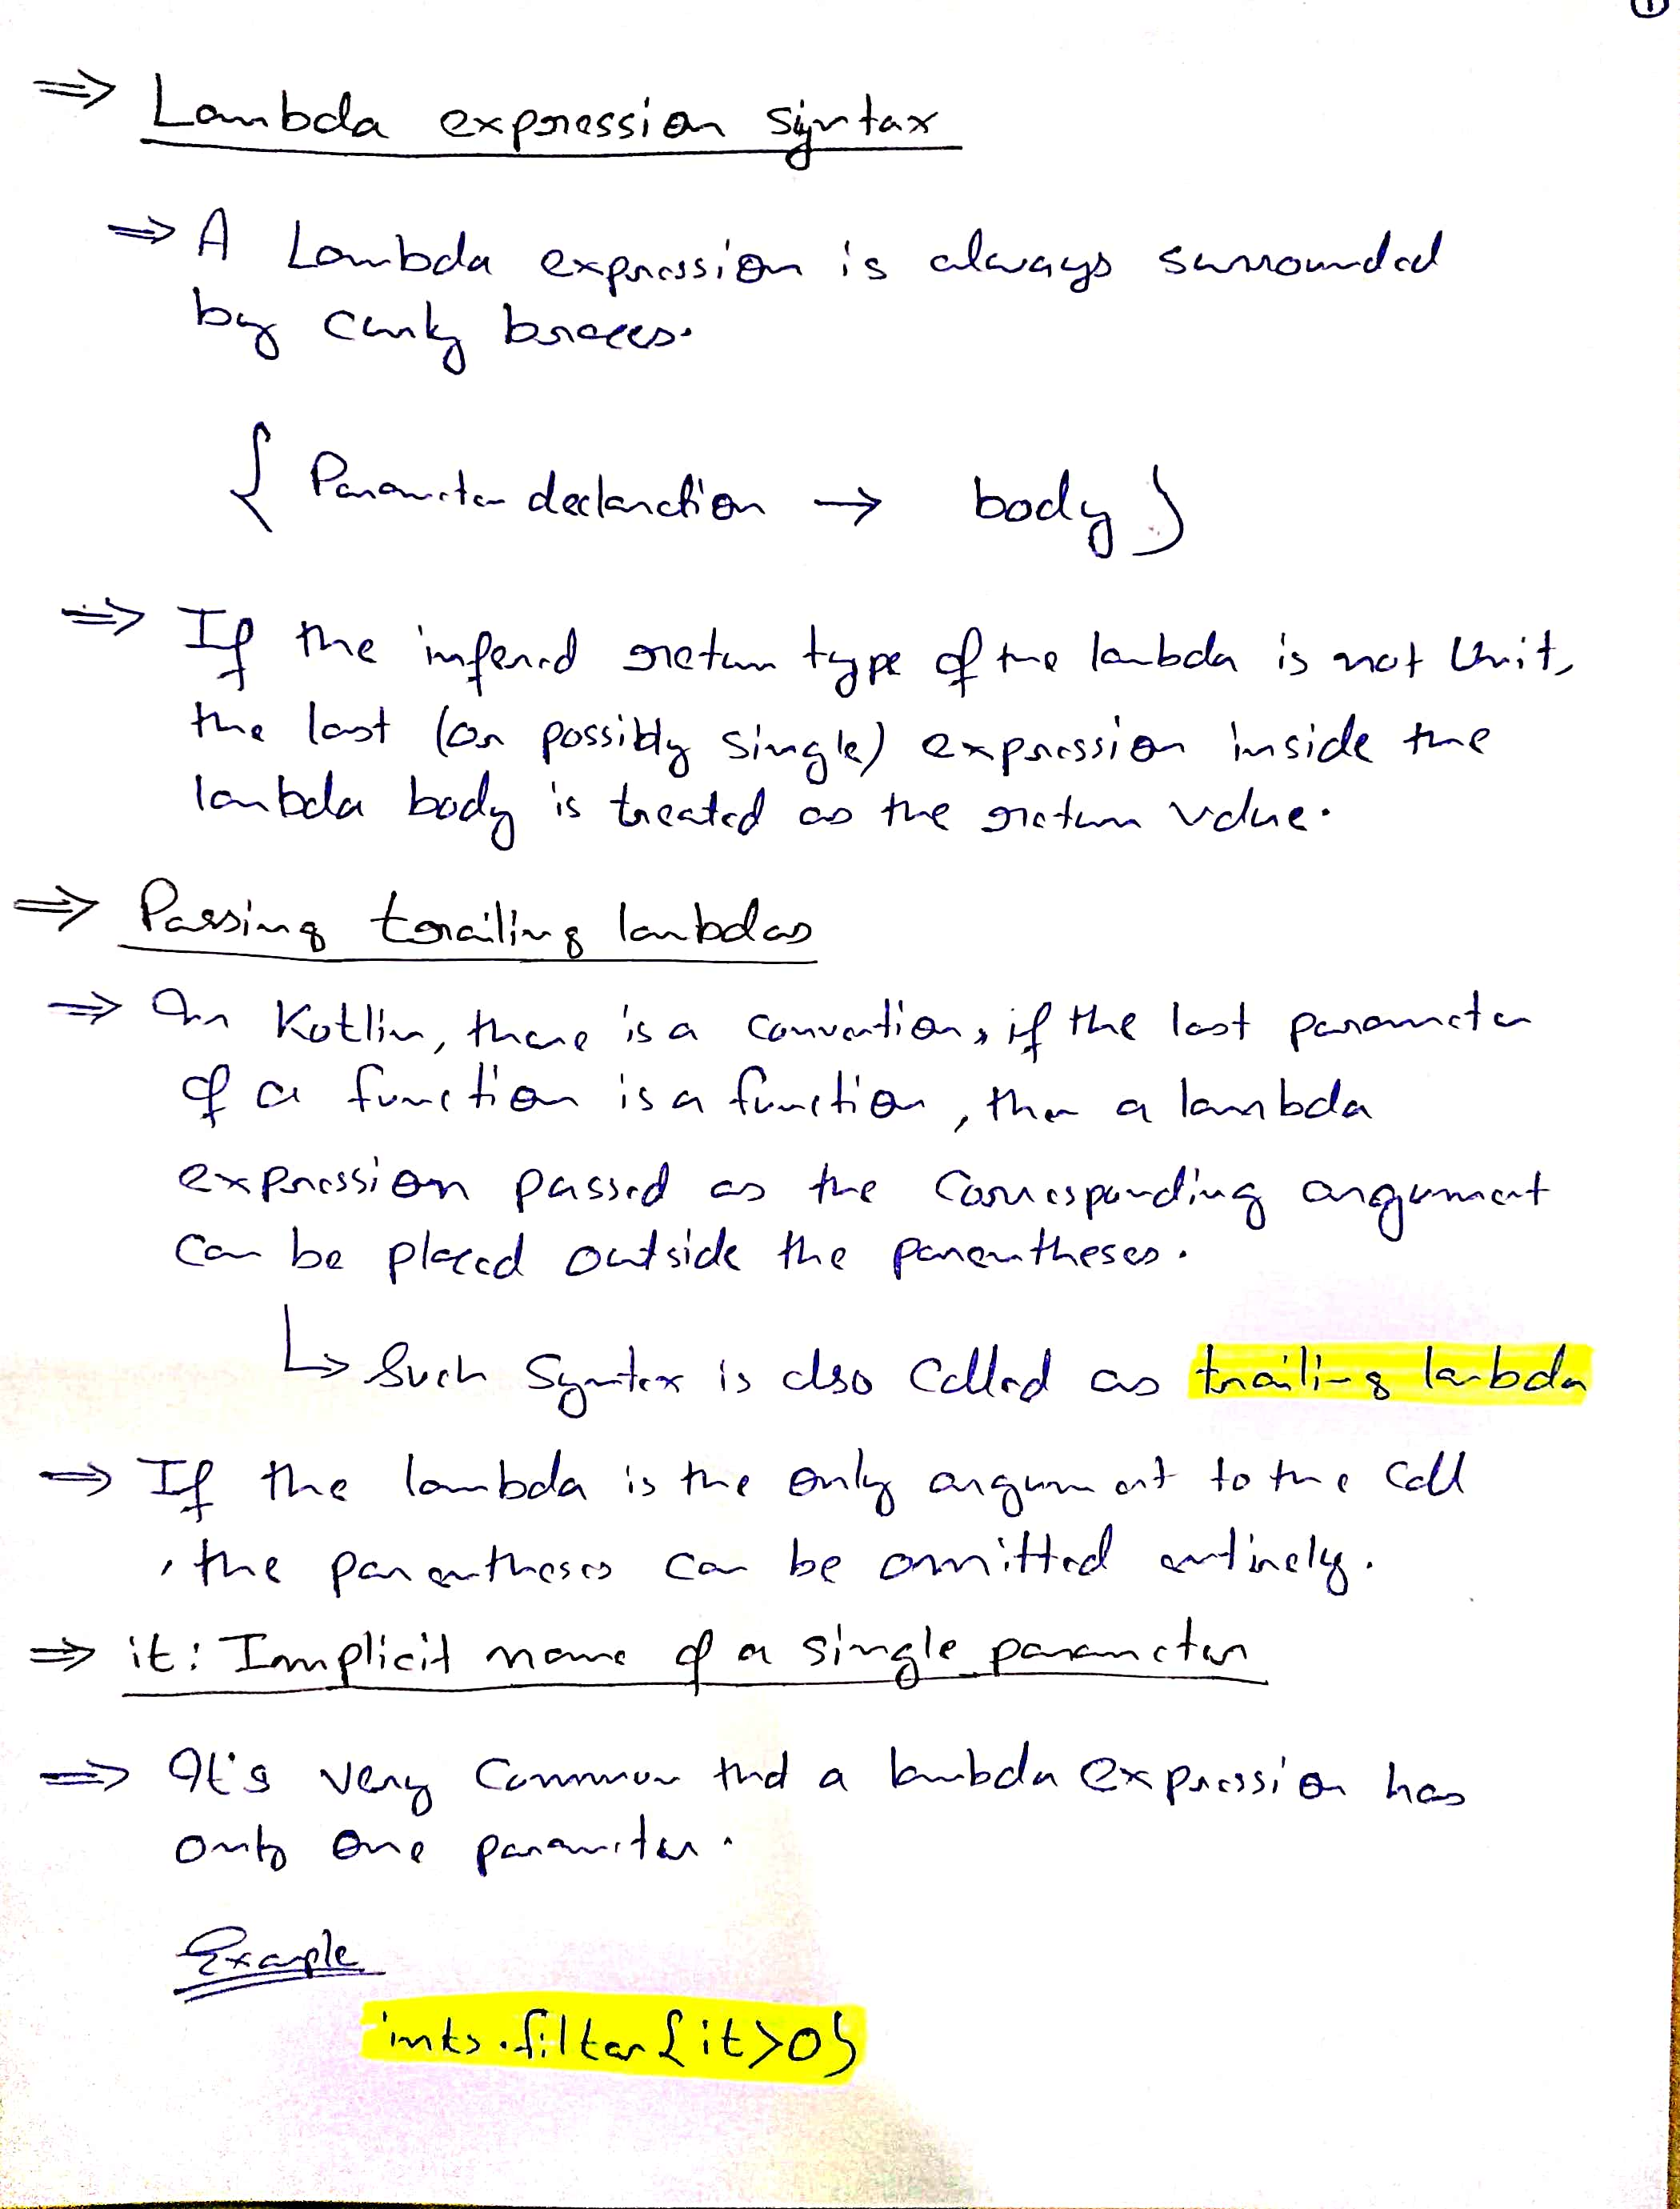 ①
⇒ Lambda expression syntax
⇒ A Lambda expression is always surrounded
by curly braces.
{ Parameter declaration → body }
⇒ If the inferred return type of the lambda is not Unit,
the last (or possibly single) expression inside the
lambda body is treated as the return value.
⇒ Passing trailing lambdas
⇒ In Kotlin, there is a convention, if the last parameter
of a function is a function, then a lambda
expression passed as the corresponding argument
can be placed outside the parentheses.
↳ Such Syntax is also called as trailing lambda
⇒ If the lambda is the only argument to the call
, the parentheses can be omitted entirely.
⇒ it: Implicit name of a single parameter
⇒ It's very common that a lambda expression has
only one parameter.
Example
ints.filter{it>0}